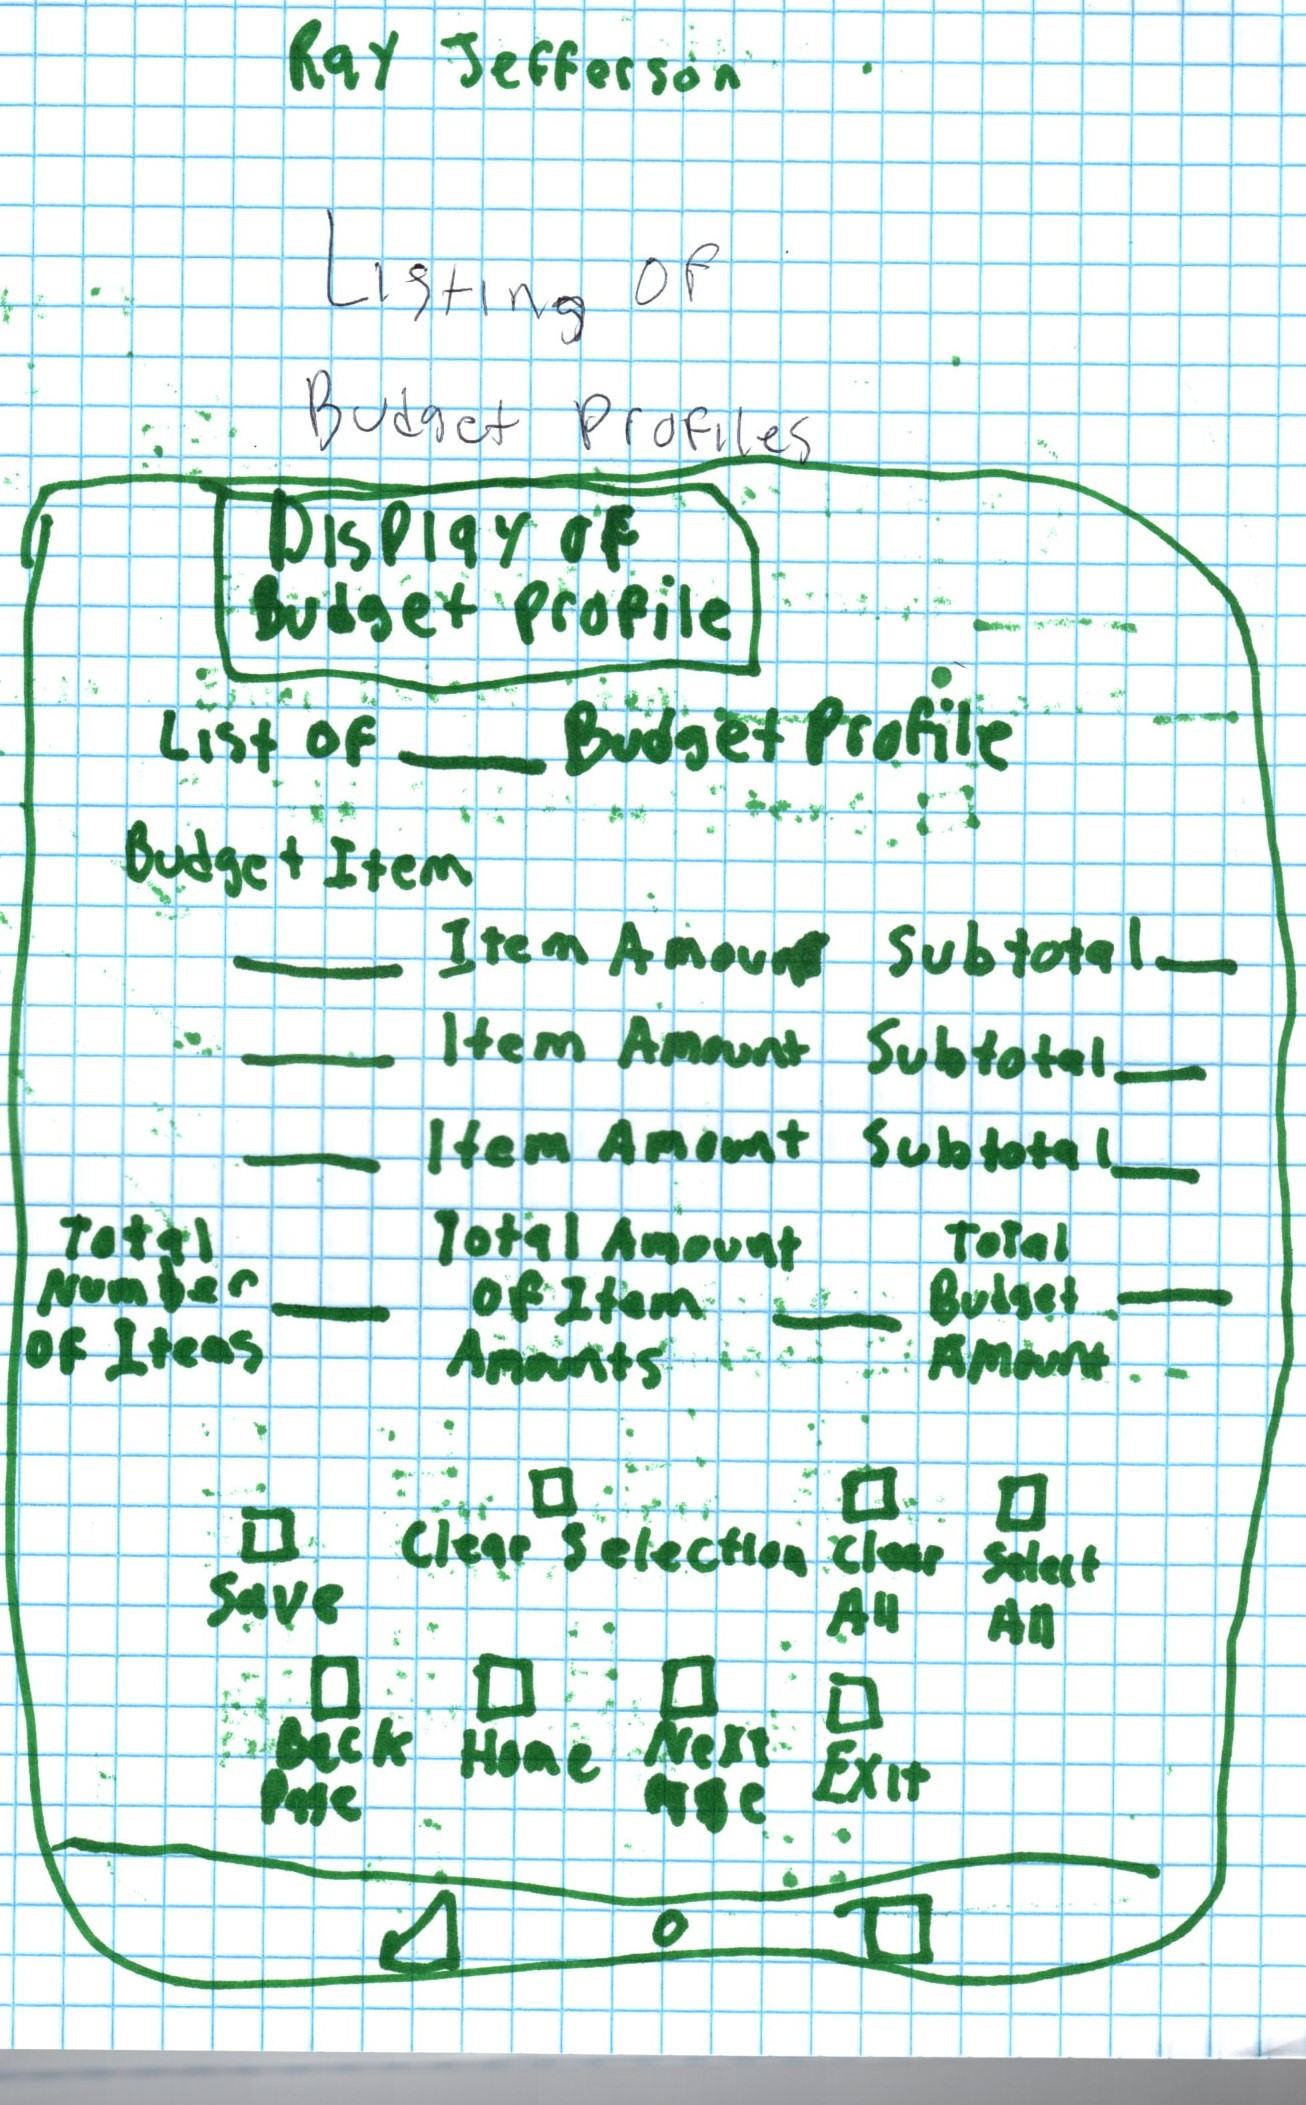 Ray Jefferson
Listing OF
Budget Profiles
Display of
Budget Profile
List OF ____ Budget Profile
Budget Item
____ Item Amount Subtotal ____
____ Item Amount Subtotal ____
____ Item Amount Subtotal ____
Total Number OF Items ____
Total Amount OF Item Amounts ____
Total Budget Amount ____
Save
Clear Selection
Clear All
Select All
Back Page
Home
Next Page
Exit